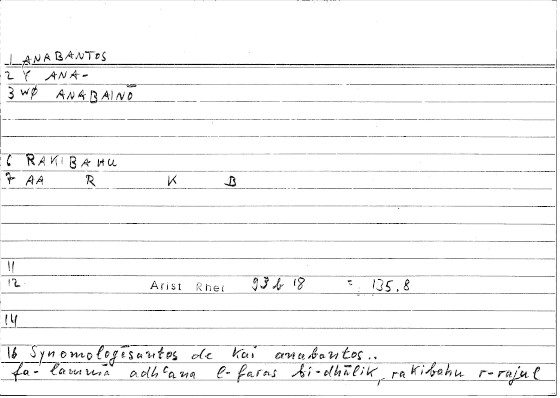 1 ANABANTOS
2 Y ANA-
3 WØ ANABAINŌ
6 RAKIBAHU
7 AA R K B
11
12 Arist Rhet 93 b 18 = 135.8
14
16 Synomologēsantos de kai anabantos..
fa-lammā adhʿana l-faras bi-dhālik, rakibahu r-rajul